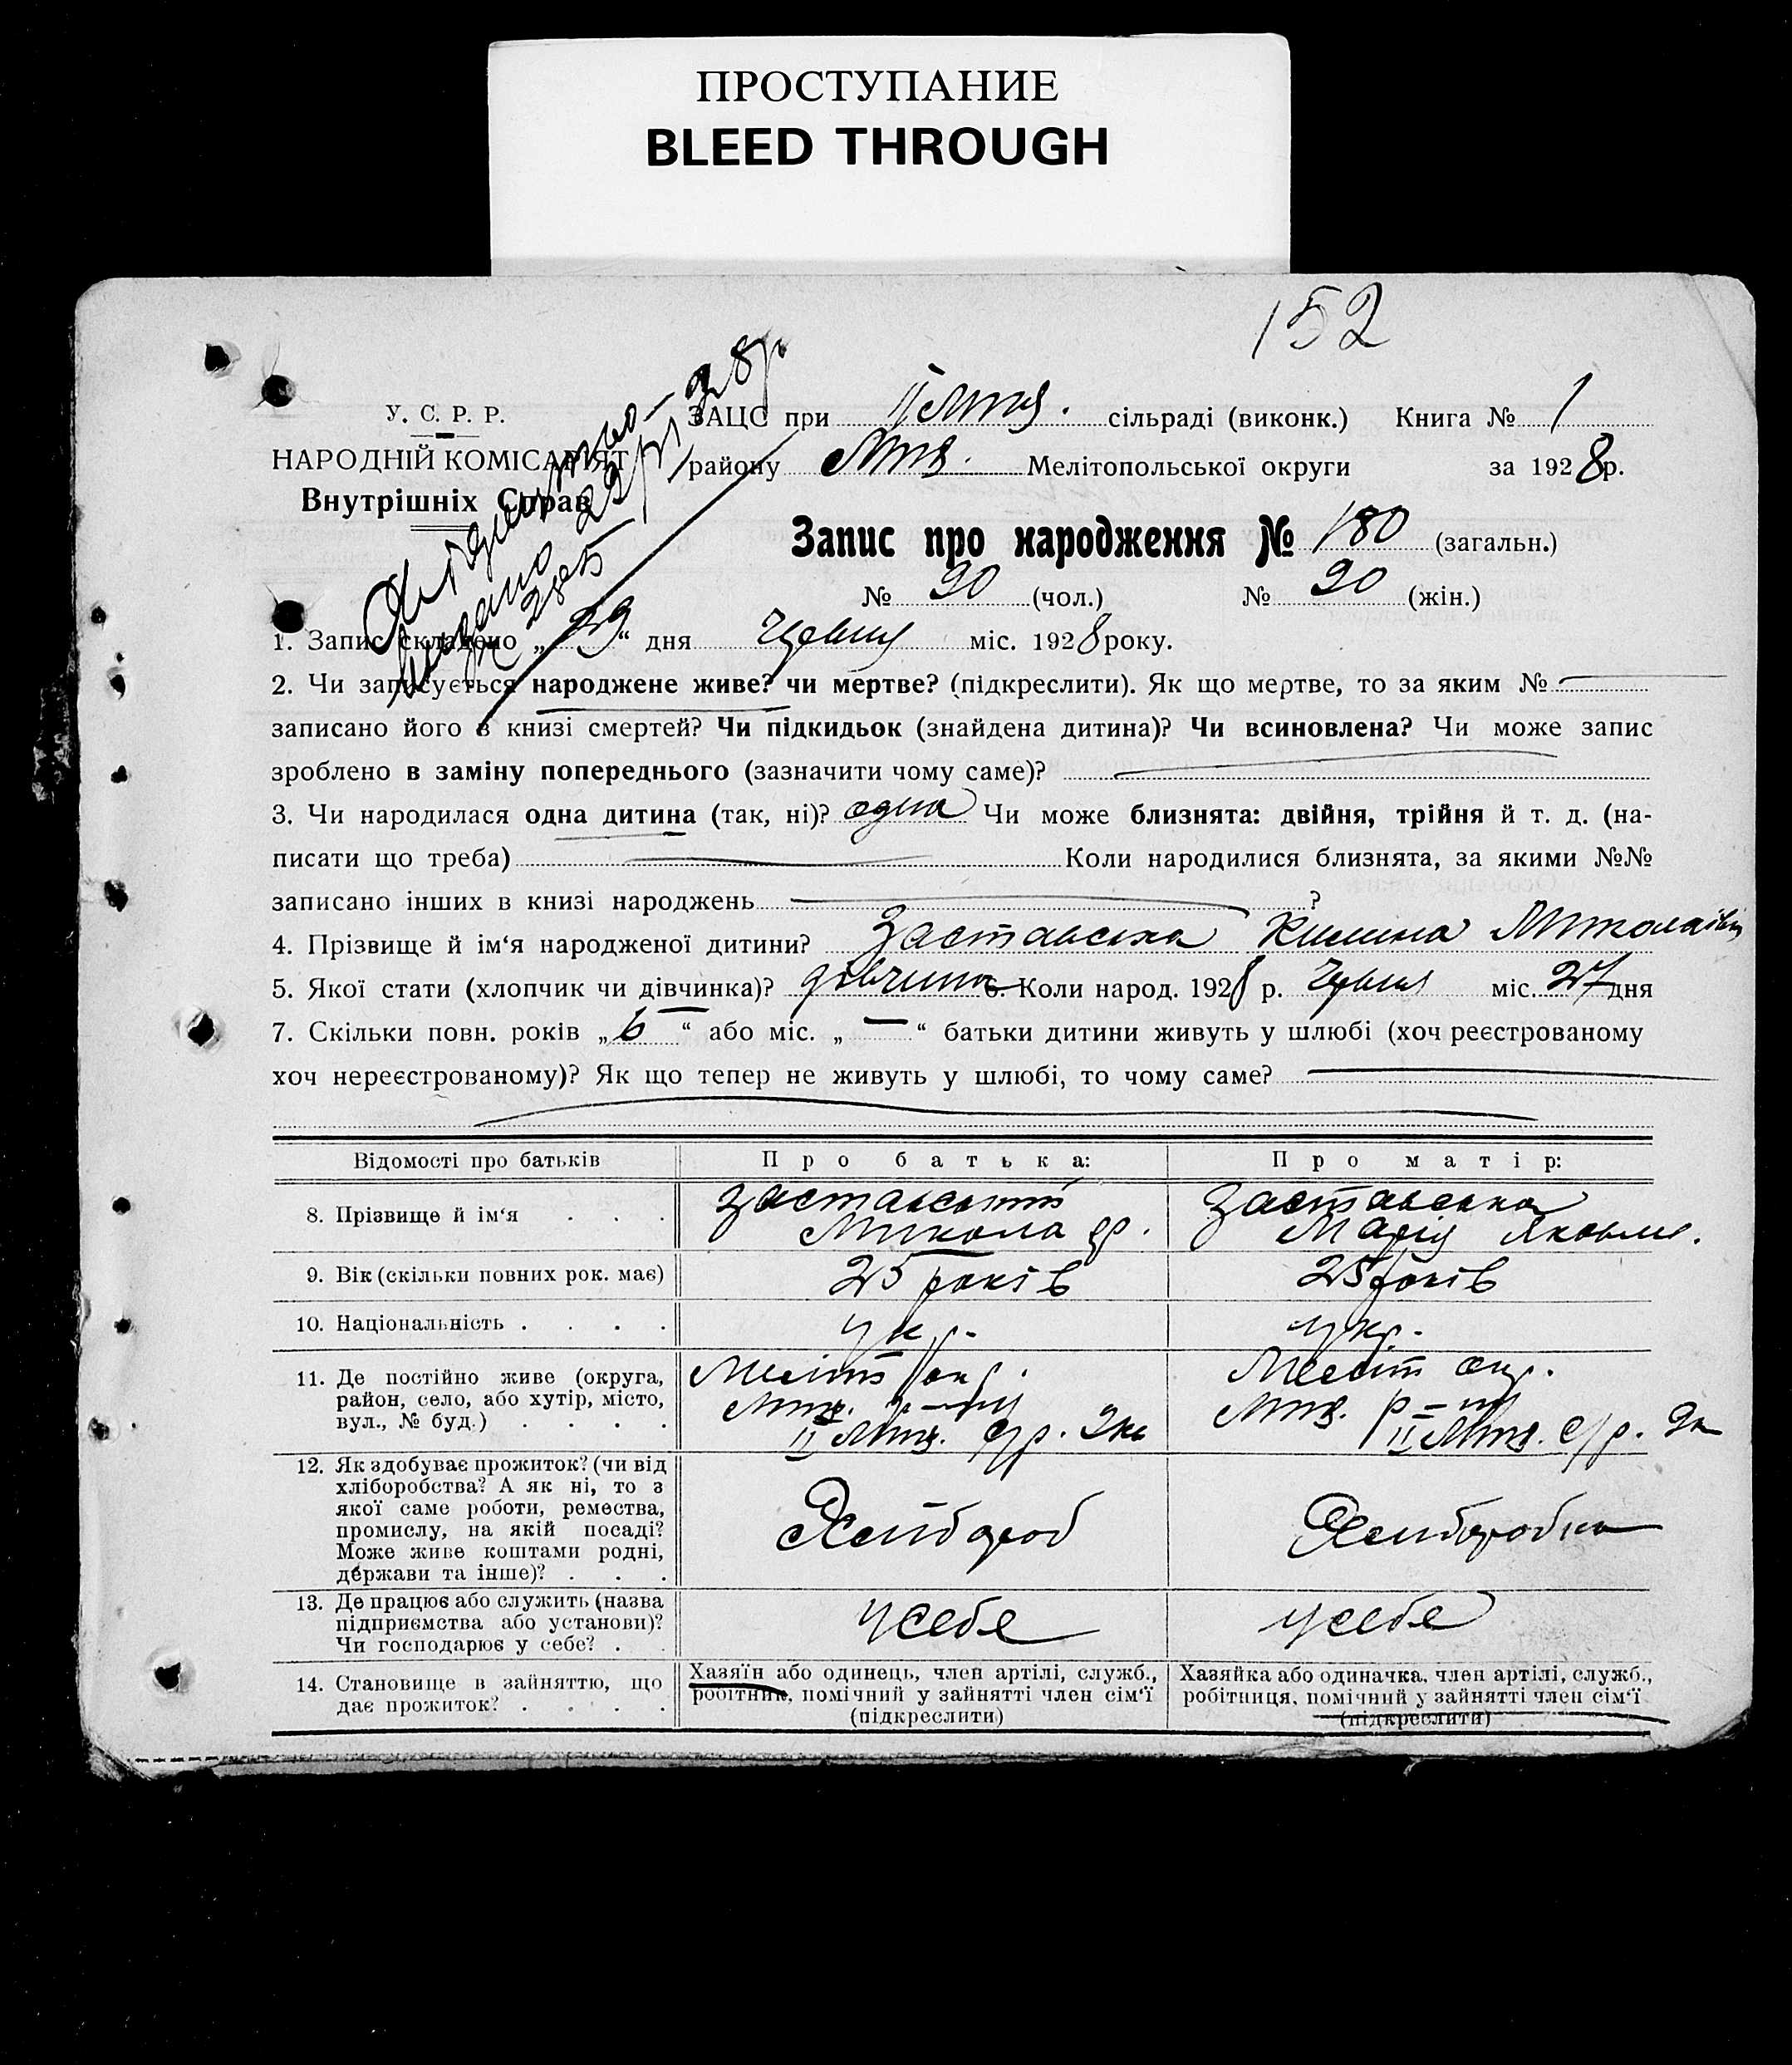 ПРОСТУПАНИЕ
BLEED THROUGH
152
28р.
У. С. Р. Р.
НАРОДНІЙ КОМІСАРІЯТ
Внутрішніх Справ
ЗАЦС при II сільраді (виконк.) Книга № 1
району Мелітопольської округи за 1928р.
Запис про народження № 180 (загальн.)
№ 90 (чол.) № 90 (жін.)
1. Запис складено „29“ дня Червня міс. 1928 року.
2. Чи записується народжене живе? чи мертве? (підкреслити). Як що мертве, то за яким № —
записано його в книзі смертей? Чи підкидьок (знайдена дитина)? Чи всиновлена? Чи може запис
зроблено в заміну попереднього (зазначити чому саме)? —
3. Чи народилася одна дитина (так, ні)? одна Чи може близнята: двійня, трійня й т. д. (на-
писати що треба) — Коли народилися близнята, за якими №№
записано інших в книзі народжень — ?
4. Прізвище й ім‘я народженої дитини? Заставська Миколаївн
5. Якої стати (хлопчик чи дівчинка)? дівчина 6. Коли народ. 1928 р. Червня міс. 27 дня
7. Скільки повн. років „6“ або міс. „—“ батьки дитини живуть у шлюбі (хоч реєстрованому
хоч нереєстрованому)? Як що тепер не живуть у шлюбі, то чому саме? —
Відомості про батьків Про батька: Про матір:
8. Прізвище й ім‘я . . . Заставський Заставська
Микола гр. Марія Яковл.
9. Вік (скільки повних рок. має) 25 років 25 років
10. Національність . . . . укр. укр.
11. Де постійно живе (округа, Меліт окр. Меліт окр.
район, село, або хутір, місто, р-ну р-ну
вул., № буд.) . . . . II с/р. II с/р.
12. Як здобуває прожиток? (чи від
хліборобства? А як ні, то з
якої саме роботи, ремества, Хлібороб Хлиборобка
промислу, на якій посаді?
Може живе коштами родні,
держави та інше)? . . .
13. Де працює або служить (назва у себе у себе
підприємства або установи)?
Чи господарює у себе? . .
14. Становище в зайняттю, що Хазяїн або одинець, член артілі, служб., Хазяйка або одиначка, член артілі, служб.,
дає прожиток? . . . . робітник, помічний у зайнятті член сім‘ї робітниця, помічний у зайнятті член сім‘ї
(підкреслити) (підкреслити)